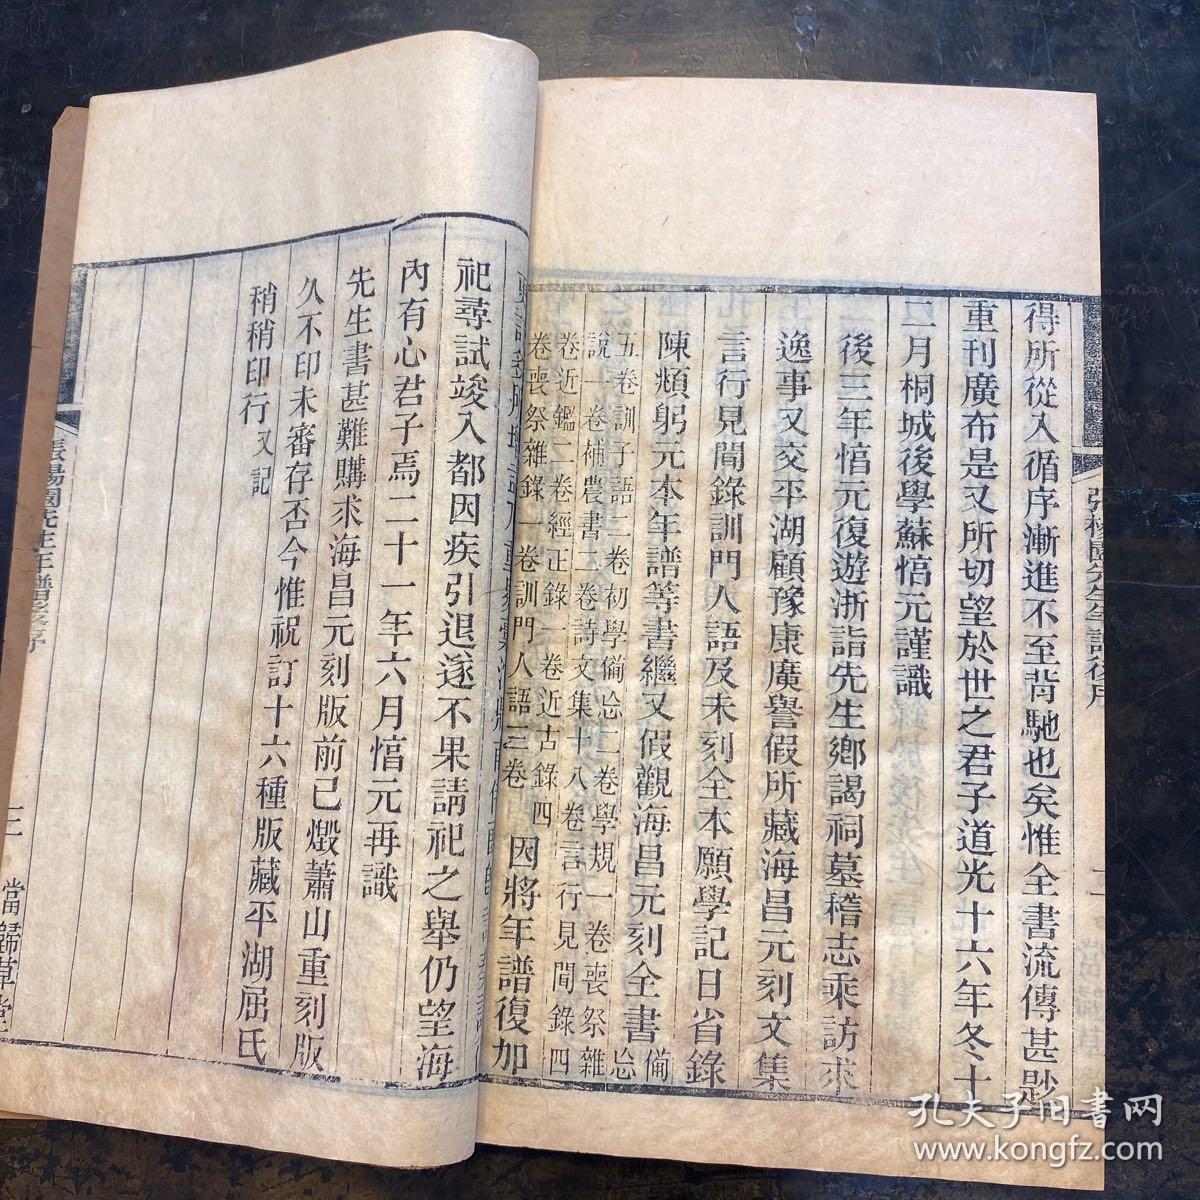 得所從入循序漸進不至背馳也矣惟全書流傳甚尠
重刊廣布是又所切望於世之君子道光十六年冬十
二月桐城後學蘇惇元謹識
後三年惇元復遊浙詣先生鄉謁祠墓稽志乘訪求
逸事又交平湖顧豫康廣譽假所藏海昌元刻文集
言行見聞錄訓門人語及未刻全本願學記日省錄
陳頫躬元本年譜等書繼又假觀海昌元刻全書備忘
五卷訓子語二卷初學備忘二卷學規一卷喪祭雜
說一卷補農書二卷詩文集十八卷言行見聞錄四
卷近鑑二卷經正錄一卷近古錄四
卷喪祭雜錄一卷訓門人語三卷因將年譜復加
祀尋試竣入都因疾引退遂不果請祀之舉仍望海
內有心君子焉二十一年六月惇元再識
先生書甚難購求海昌元刻版前已燬蕭山重刻版
久不印未審存否今惟祝訂十六種版藏平湖屈氏
稍稍印行又記
張楊園先生年譜後序
二
張楊園先生年譜後序
三
當歸草堂
孔夫子旧书网
www.kongfz.com